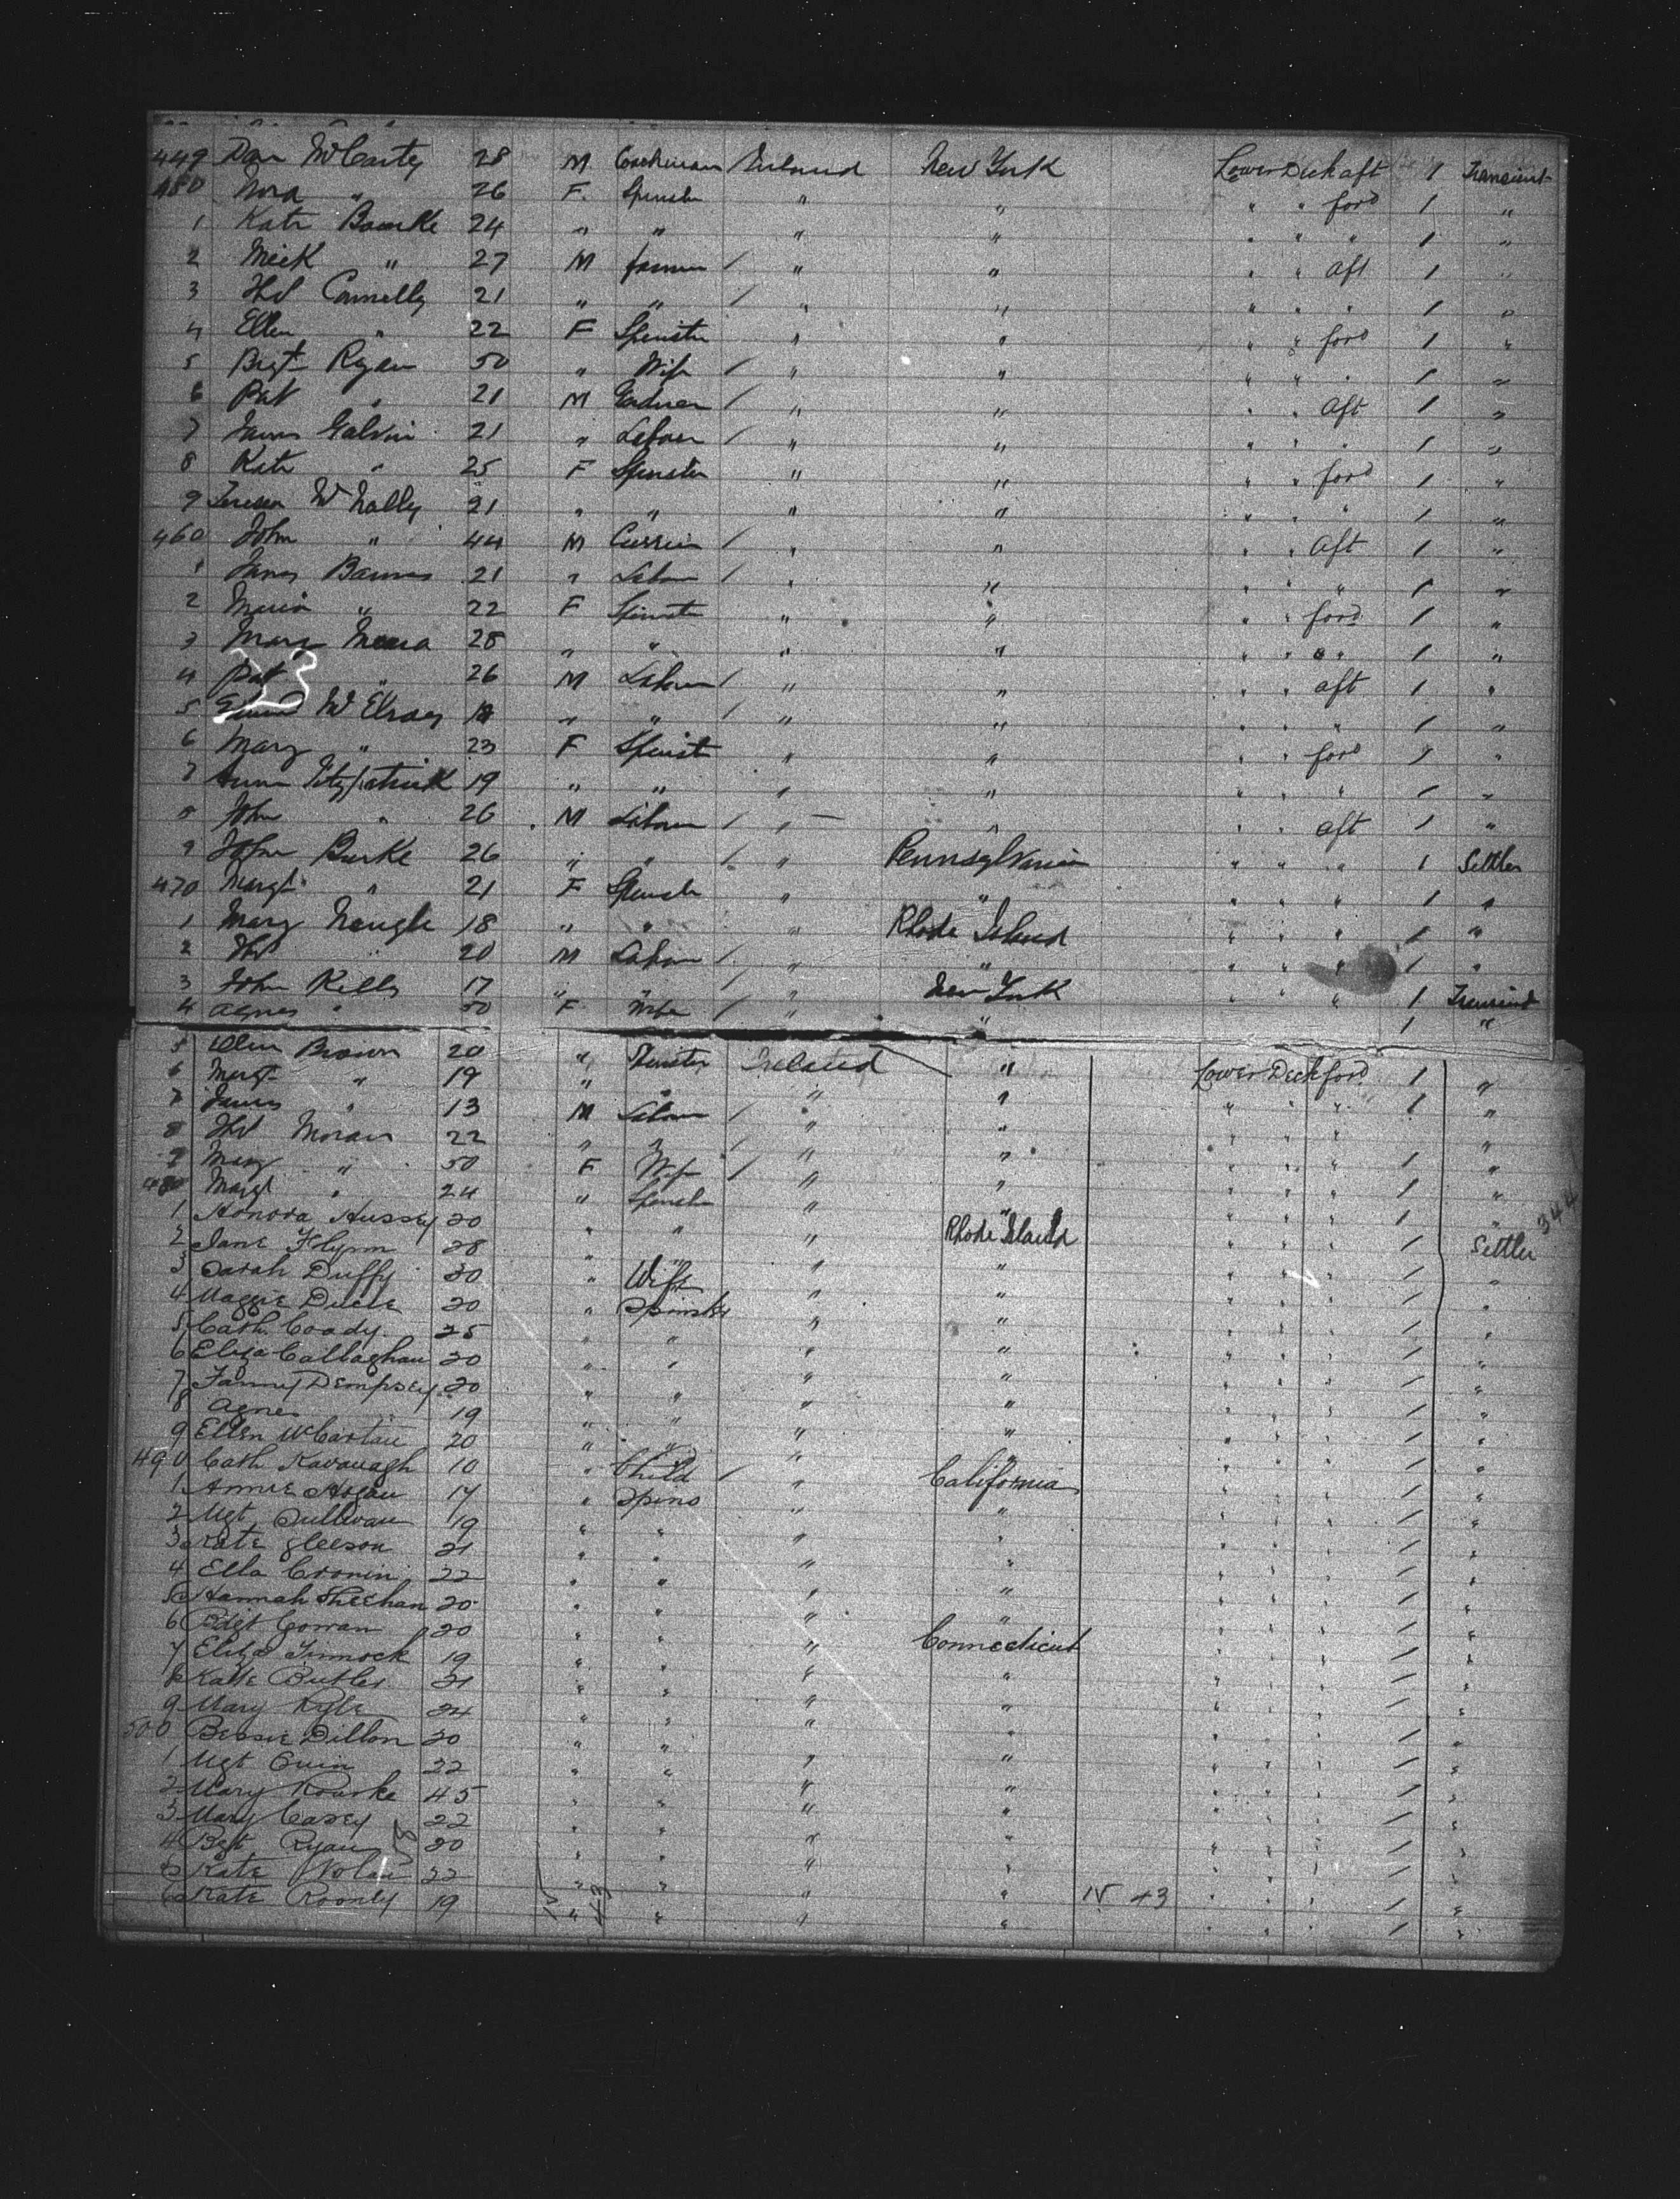 449 Dan McCarty 28 M Coachman Ireland New York Lower Deck aft 1 Transient
450 Nora " 26 F. Spinster " " " " ford 1 "
1 Kate Bourke 24 " " " " " " " 1 "
2 Mick " 27 M farmer / " " " " aft 1 "
3 Connelly 21 " " / " " " " " 1 "
4 Ellen " 22 F Spinster " " " " ford 1 "
5 Bgt Ryan 50 " Wife / " " " " " 1 "
6 Pat " 21 M / " " " " aft 1 "
7 James Galvin 21 " Labour / " " " " " 1 "
8 Kate " 25 F Spinster " " " " ford 1 "
9 Teresa McNally 21 " " " " " " " 1 "
460 John " 44 M / " " " " aft 1 "
1 James Barnes 21 " Labour / " " " " " 1 "
2 Maria " 22 F Spinster " " " " ford 1 "
3 Mary Meara 28 " " " " " " " 1 "
4 Pat " 26 M Labour / " " " " aft 1 "
5 McElroy " " / " " " " " 1 "
6 Mary " 23 F Spinst " " " " ford 1 "
7 Anne Fitzpatrick 19 " " " " " " " 1 "
8 John " 26 M Labour / " " " " aft 1 "
9 John Burke 26 " " / " Pennsylvania " " " 1 Settler
470 Margt " 21 F Spinster " " " " " 1 "
1 Mary Naugle 18 " " " Rhode Island " " " 1 "
2 " 20 M Labour / " " " " " 1 "
3 John Kelly 17 " " / " New York " " " 1 Transient
4 Agnes " 50 F Wife / " " 1 "
5 Ellen Brown 20 " Spinster Ireland " Lower Deck ford 1 "
6 Margt " 19 " " " " " " " 1 "
7 James " 13 M Labour / " " " " " 1 "
8 Moran 22 " " / " " " " " 1 "
9 Mary " 50 F Wife / " " " " " 1 "
480 Margt " 24 " Spinster " " " " " 1 "
1 Honora Hussey 20 " " " Rhode Island " " " 1 Settler
2 Jane Flynn 28 " " " " " " " 1 "
3 Sarah Duffy 30 " Wife " " " " " 1 "
4 Maggie 20 " Spinster " " " " " 1 "
5 Cath. Coady 25 " " " " " " " 1 "
6 Eliza Callaghan 20 " " " " " " " 1 "
7 Fanny Dempsey 20 " " " " " " " 1 "
8 Agnes 19 " " " " " " " 1 "
9 Ellen McCartan 20 " " " " " " " 1 "
490 Cath Kavanagh 10 " Child / " California " " " 1 "
1 Annie Hogan 17 " Spins " " " " " 1 "
2 Mgt Sullivan 19 " " " " " " " 1 "
3 Kate Gleeson 21 " " " " " " " 1 "
4 Ella Cronin 22 " " " " " " " 1 "
5 Hannah Sheehan 20 " " " " " " " 1 "
6 Bdgt Cowan 20 " " " Connecticut " " " 1 "
7 Eliza Finnock 19 " " " " " " " 1 "
8 Kate Butler 21 " " " " " " " 1 "
9 Mary Kyle 24 " " " " " " " 1 "
500 Bessie Dillon 20 " " " " " " " 1 "
1 Mgt Quin 22 " " " " " " " 1 "
2 Mary Rourke 45 " " " " " " " 1 "
3 Mary Casey 22 " " " " " " " 1 "
4 Bgt Ryan 20 " " " " " " " 1 "
5 Kate Nolan 22 " " " " " " " 1 "
6 Kate Roonly 19 " " " " IV 43 " " " 1 "
344
23
43